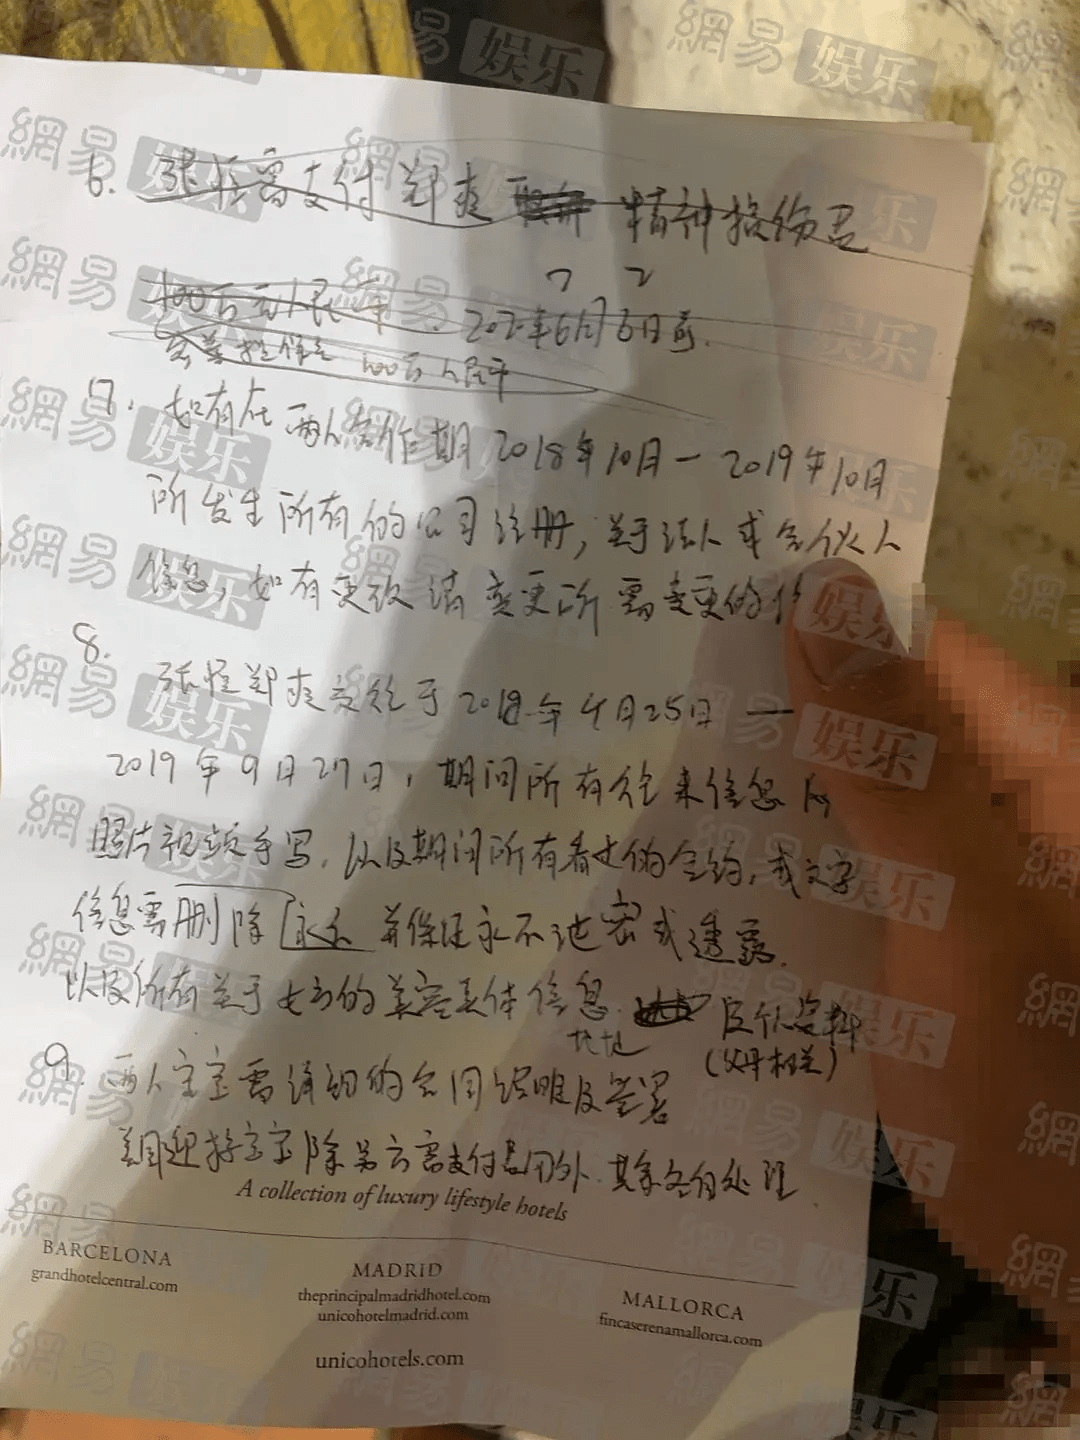 6. 张恒需支付郑爽 精神损伤君
400万元人民币. 202年6月6日前.
损伤 100万人民币
7. 如有在两人合作期2018年10月一2019年10月
所发生所有的公司注册,关于法人或合伙人
信息,如有更改请变更所需变更的
8. 张恒郑爽交往于2018年4月25日 —
2019年9月27日,期间所有往来信息
照片视频手写,以及期间所有看过的合约,或文字
信息需删除 永久 并保证永不泄密或透露.
以及所有关于女方的美容美体信息. 及 资料
地址 (父母相关)
9. 两人宝宝需详细的合同说明及签署
宝宝除另方需支付费用外.其余各自处理.
A collection of luxury lifestyle hotels
BARCELONA
grandhotelcentral.com
MADRID
theprincipalmadridhotel.com
unicohotelmadrid.com
MALLORCA
fincaserenamallorca.com
unicohotels.com
網易娱乐